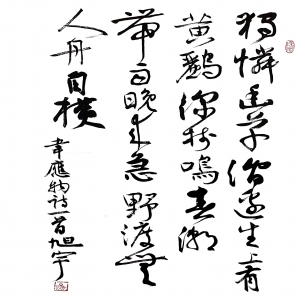 獨憐幽草澗邊生上有
黄鸝深樹鳴春潮
帶雨晚来急野渡無
人舟自横
韋應物詩一首旭宇